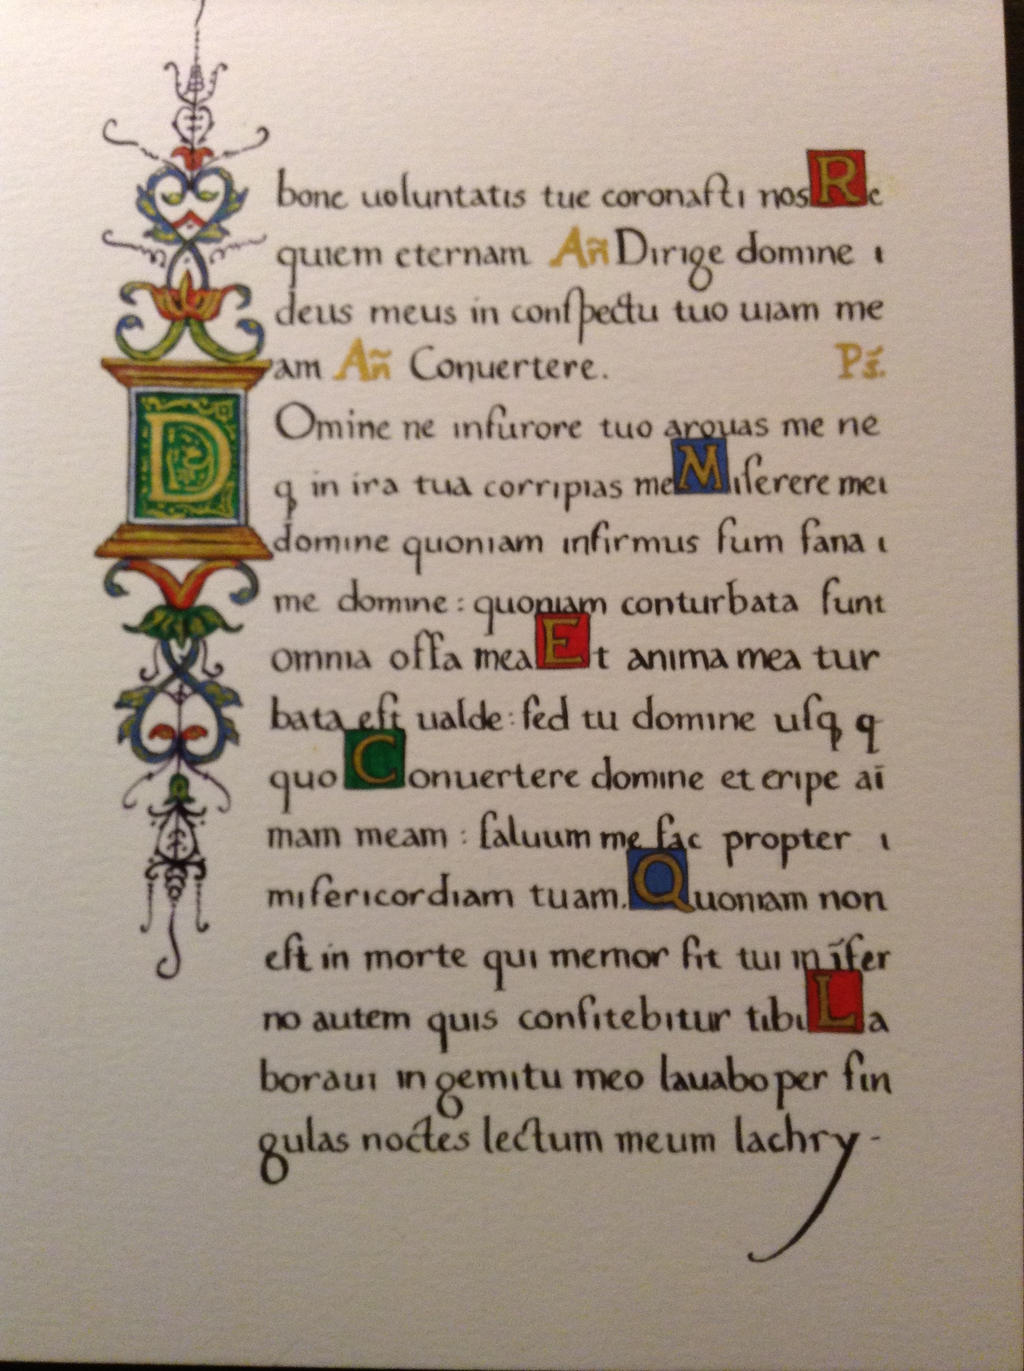 bone uoluntatis tue coronaſti nos Re
quiem eternam Añ Dirige domine ı
deus meus in conſpectu tuo uiam me
am Añ Conuertere. Ps̃.
DOmine ne infurore tuo arguas me ne
q in ira tua corripias me Miſerere mei
domine quoniam infirmus ſum ſana ı
me domine : quoniam conturbata ſunt
omnia oſſa mea Et anima mea tur
bata eſt ualde : ſed tu domine uſq q
quo Conuertere domine et eripe aī
mam meam : ſaluum me fac propter ı
miſericordiam tuam. Quoniam non
eſt in morte qui memor ſit tui in īfer
no autem quis confitebitur tibi La
boraui in gemitu meo lauabo per ſin
gulas noctes lectum meum lachry-